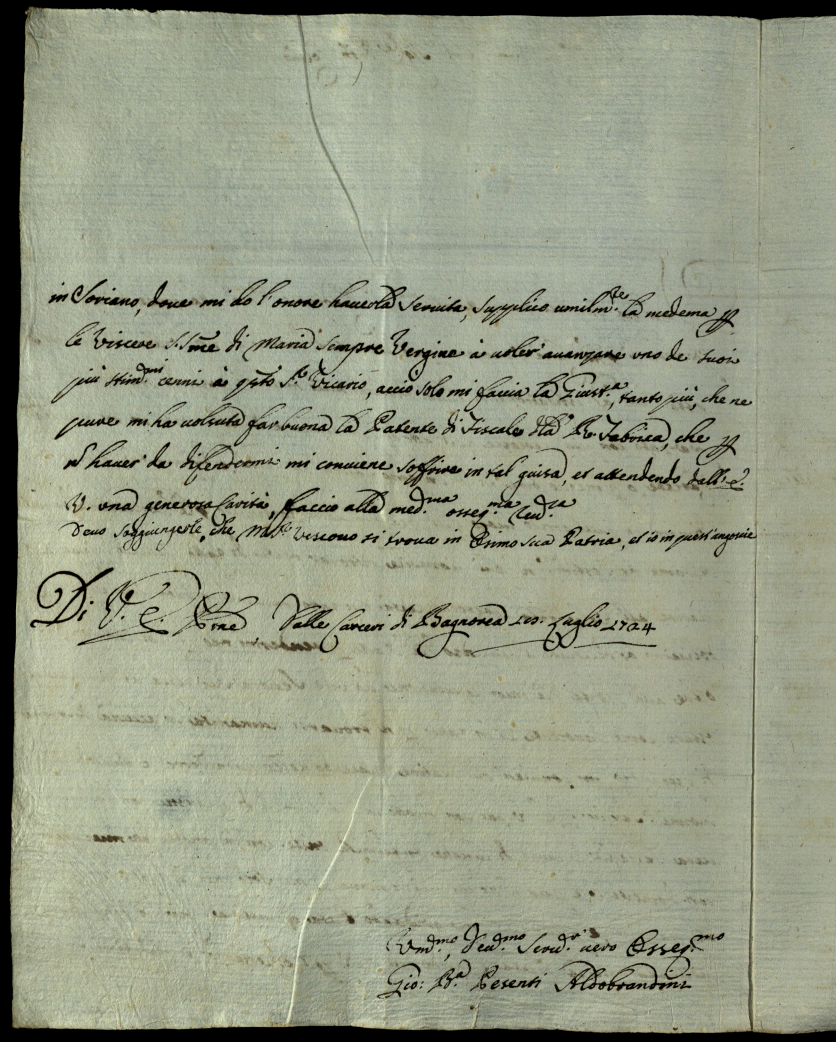 in Soriano, doue mi do l'onore hauerla seruita, supplico umilm.te la medema p
le Viscere S.S.me di Maria sempre Vergine à uoler auanzare uno de suoi
più stim.mi cenni à q.sto S.r Vicario, acciò solo mi faccia la Giust.a, tanto più, che ne
pure mi ha uolsuta far buona la Patente di Fiscale d.lla R. Fabrica, che p
nõ hauer da difendermi mi conuiene soffrire in tal guisa, et attendendo dall' E.
V. una generosa Carità, faccio alla med.ma osseq.ma
Deuo soggiungerle, che Mons.r Vescouo si troua in Osimo sua Patria, et io in quest'angustie
Di V. E. Dalle Carceri di Bagnorea Luglio 1724
Um.mo, Deu.mo Seru.r uero Osseq.mo
Gio: B.a Pesenti Aldobrandini